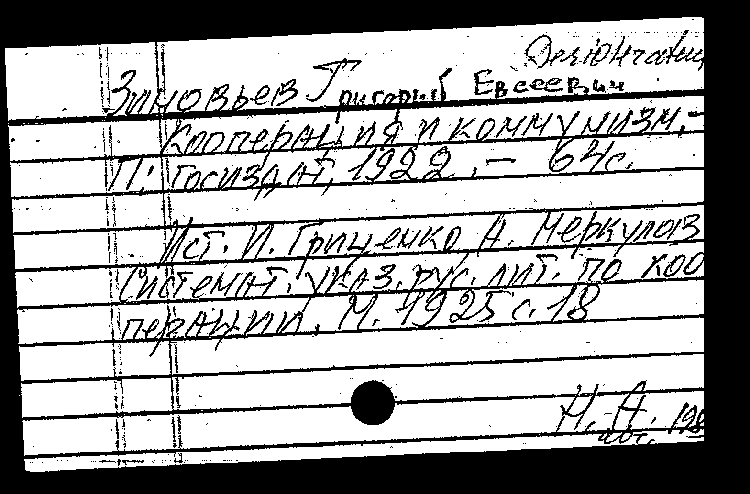 Зиновьев Григорий Евсеевич
Кооперация и коммунизм.-
П: Госиздат, 1922. - 64с.
Ист. И. Гриценко, А. Меркулов
Системат. указ. рус. лит. по коо
перации. М. 1925 с. 18
Н. А.
авг. 198